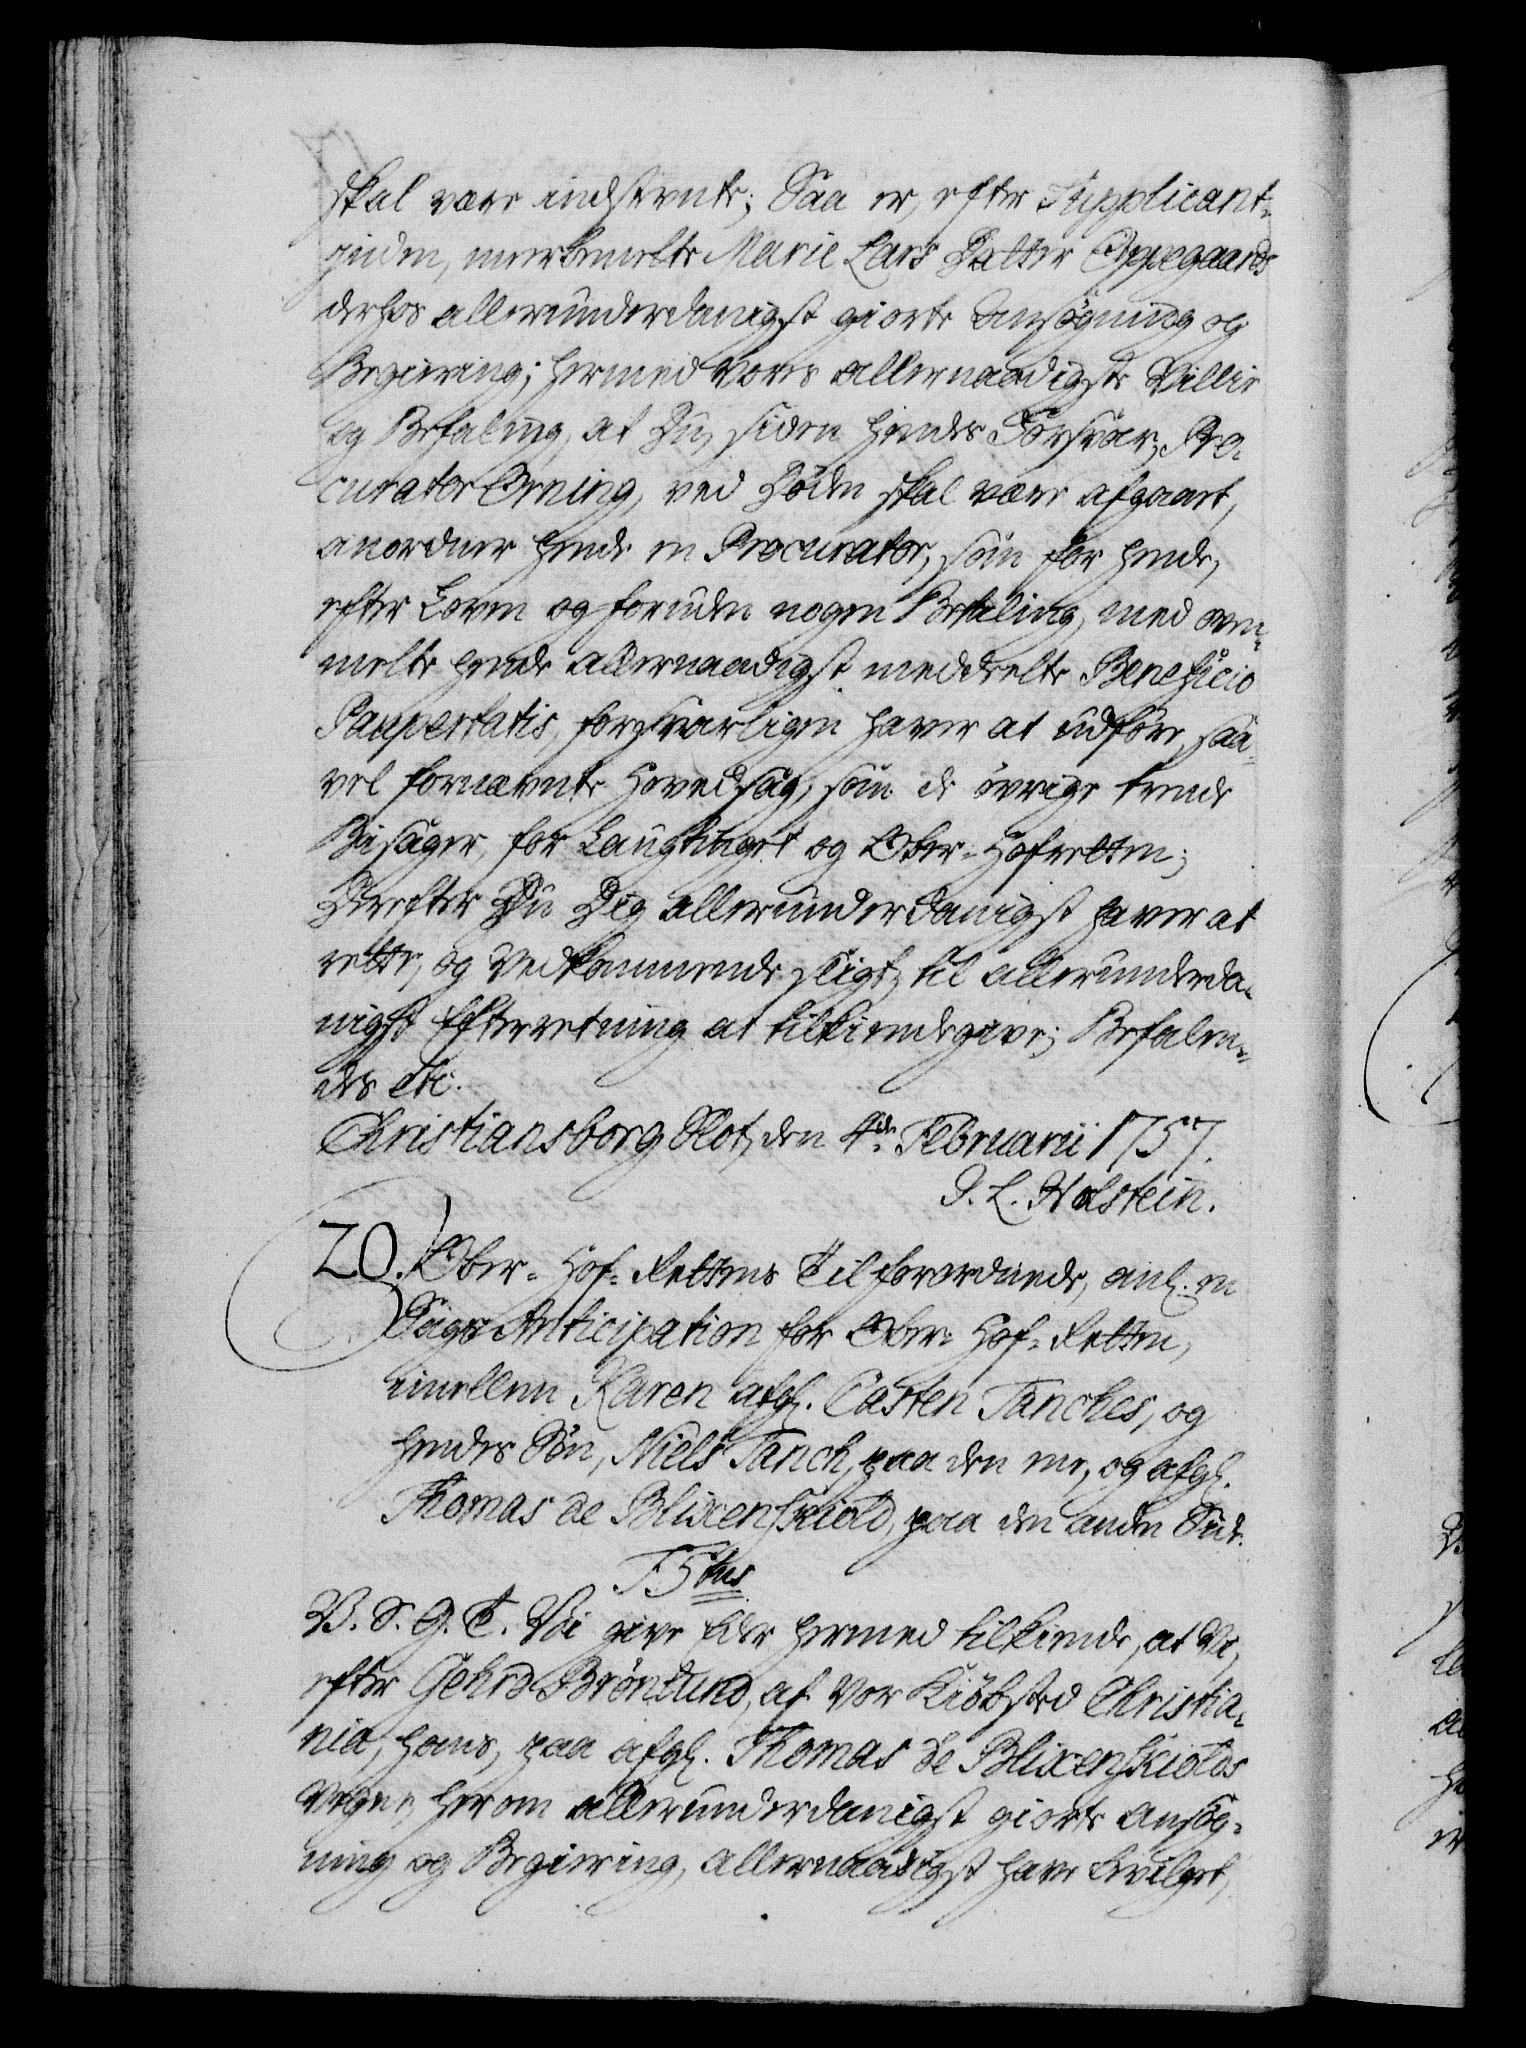 skal være indstevnte; Saa er, efter Supplicant-
inden, meerbemelte Marie Lars Datter Oppegaards
derhos allerunderdanigst giorte Ansøgning og
Begiering; hermed Vores allernaadigste Villie
og Befaling, at Du, siden hendes Forsvar, Pro-
curator Orning, ved Døden skal være afgaaet,
anordner hende en Procurator, som for hende,
efter Loven og foruden nogen Betaling, med oven-
melte hende allernaadigst meddeelte Beneficio
Paupertatis, forsvarligen haver at udføre, saa-
vel fornævnte Hovedsag, som de øvrige trende
Bisager, for Laugtinget og Ober-Hofretten;
Derefter Du Dig allerunderdanigst haver at
rette, og Vedkommende sligt, til allerunderda-
nigst Efterretning at tilkiendegive; Befalen-
des etc.
Christiansborg Slot, den 4de Februarii 1757.
J. L. Holstein.
20. Ober-Hof-Rettens Tilforordnede, anl. en
Sags Anticipation for Ober-Hof-Retten,
imellem Karen afgl. Casten Tanches, og
hendes Søn, Niels Tanch, paa den ene, og afgl.
Thomas de Blixenskiold, paa den anden Side.
F. 5tus
V. S. G. T. Vi give Eder hermed tilkiende, at Vi,
efter Gehrd Brønlund, af Vor Kiøbsted Christia-
nia, hans, paa afgl. Thomas de Blixenskiolds
Vegne, herom allerunderdanigst giorte Ansøg-
ning og Begiering, allernaadigst have bevilget,